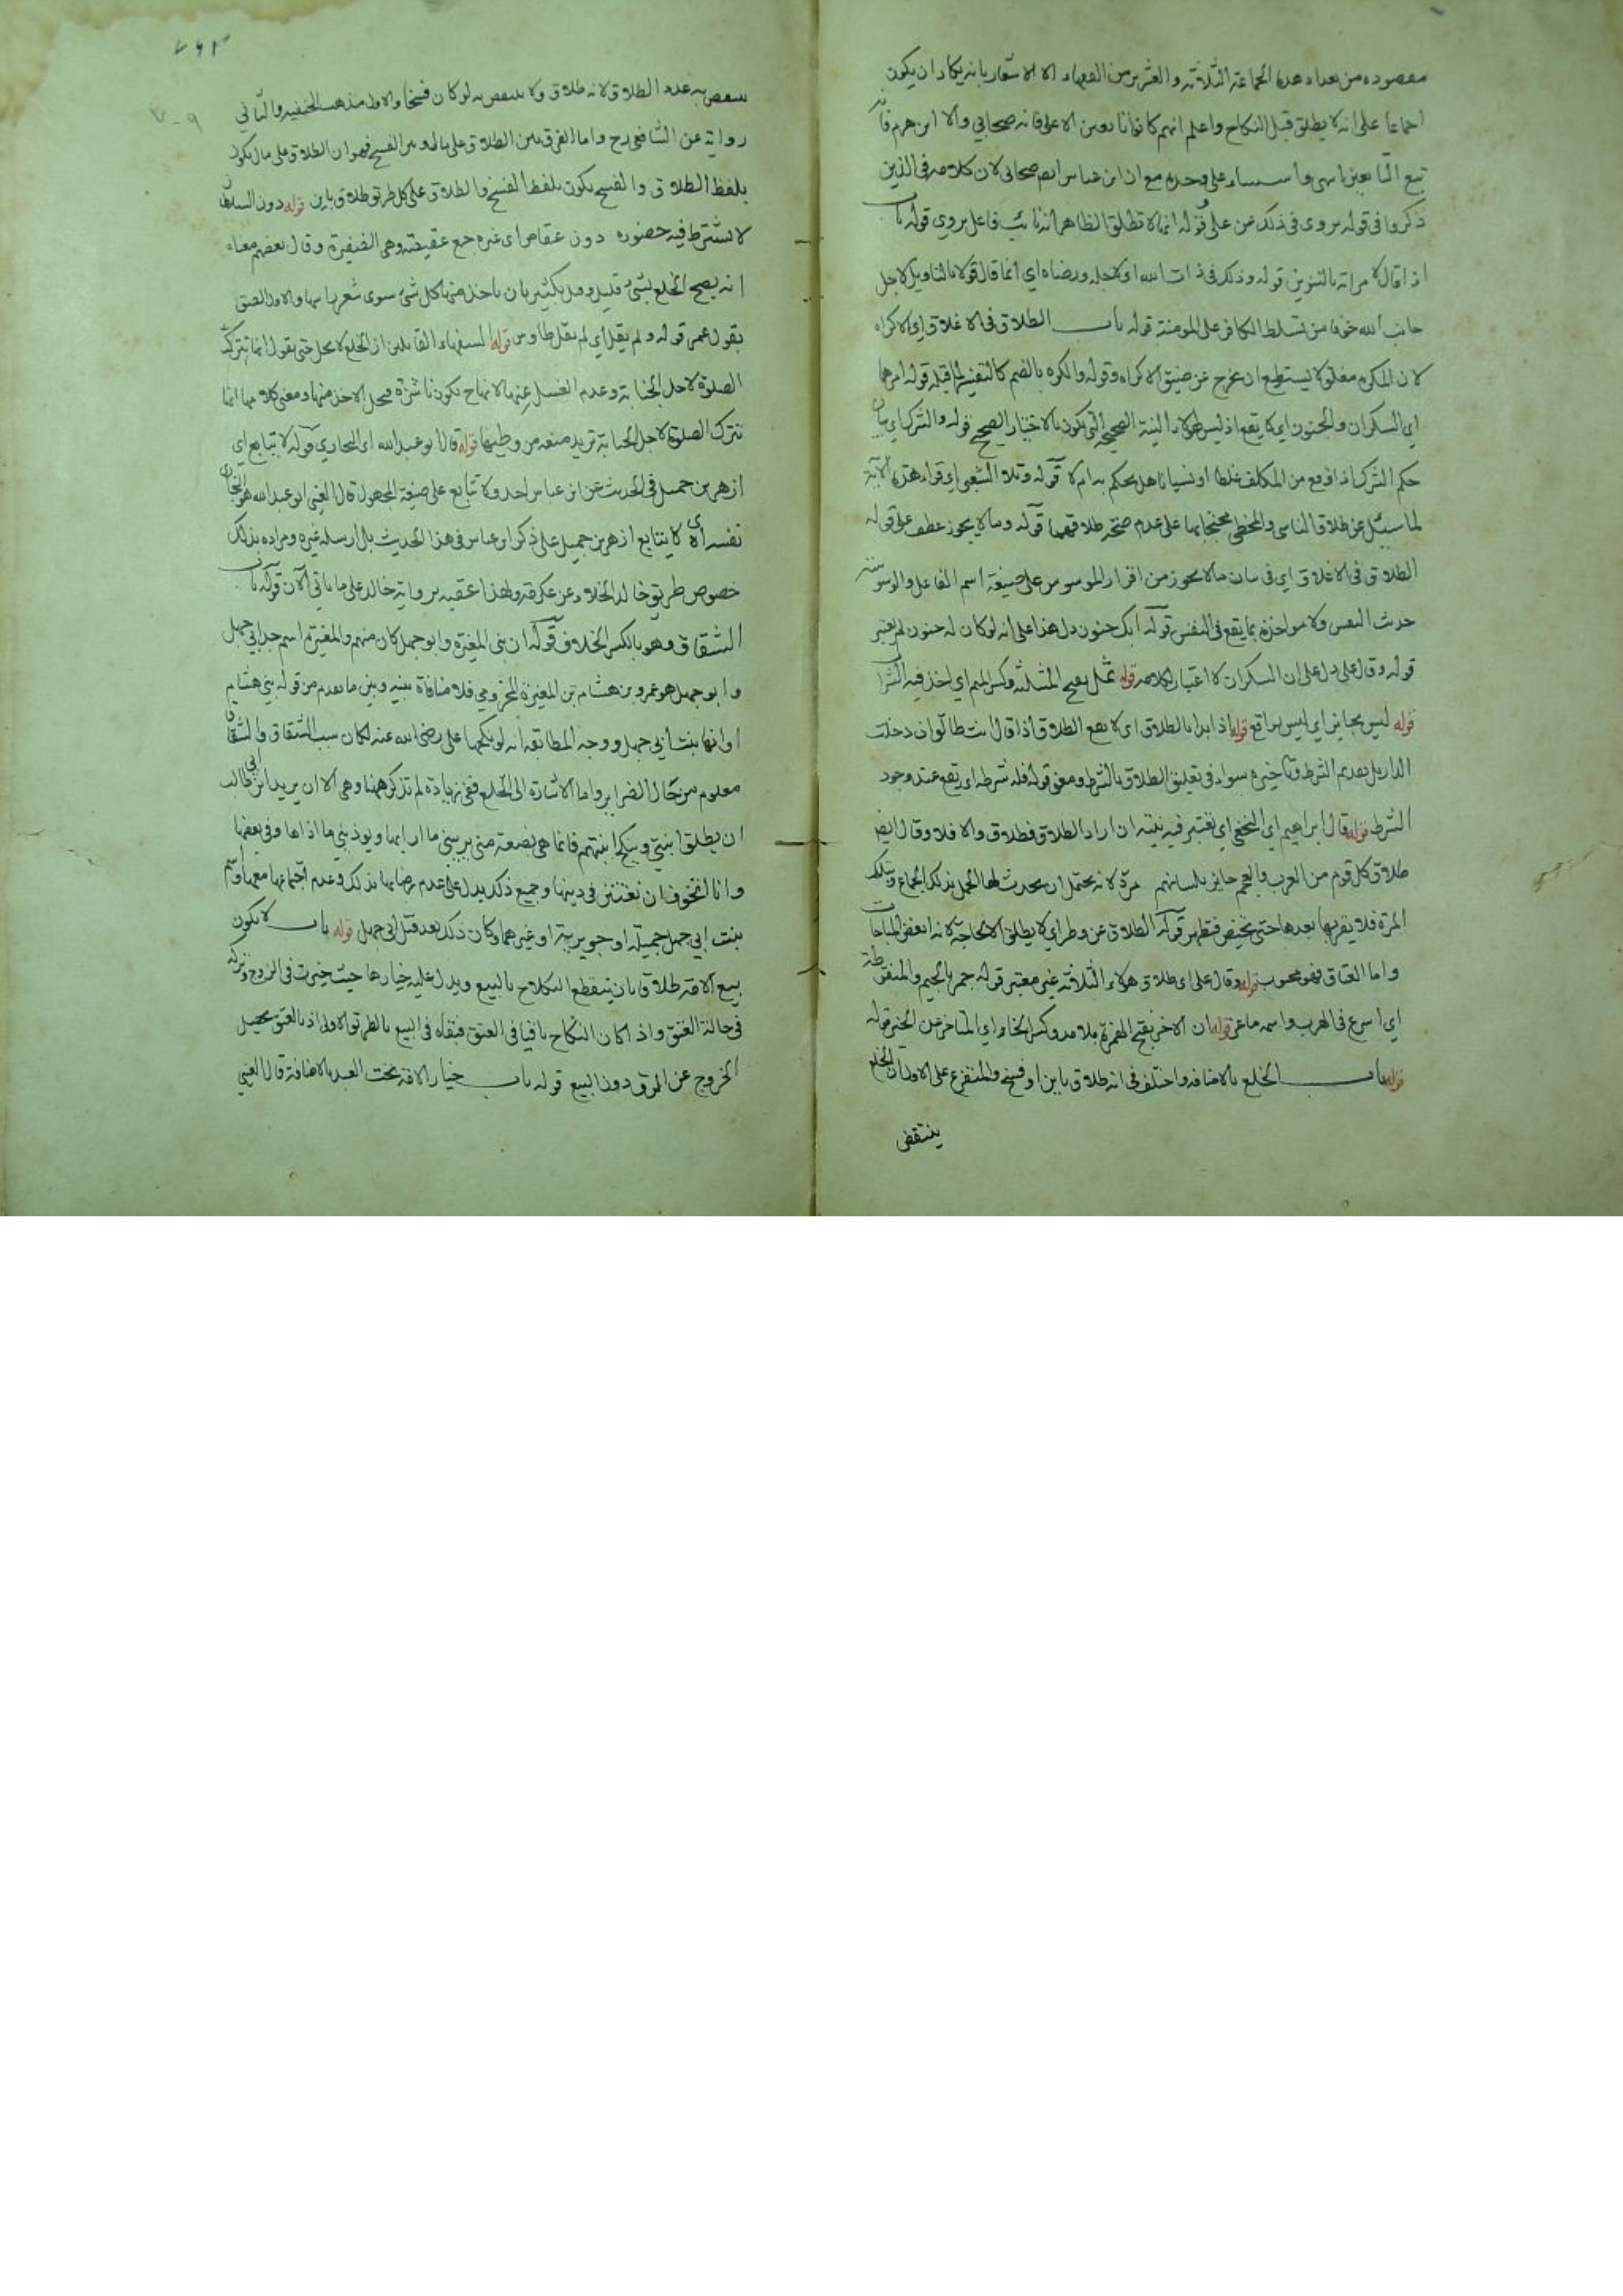 مقصوده من تعداد هذه الجماعة الثلاثة والعشرين من الفقهاء الا الاشعار بانه يكاد ان يكون
اجماعا على انه لا يطلق قبل النكاح واعلم انهم كانوا تابعين الا على فانه صحابي والا ابن هرم فانه
تبع التابعين على وحده مع ان ابن عباس صحابي لان كلامه في الذين
ذكروا في قوله يروى في ذلك عن على قوله انها لا تطلق الظاهر انه نائب فاعل يروي قوله باب
اذا قال لامراته بالتنوين قوله وذلك في ذات الله اي لاجله ورضاه اي انما قال قولا بالتاويل لاجل
جانب الله خوفا من تسلط الكافر على المومنة قوله باب الطلاق في الاغلاق اي الاكراه
لان المكره مغلق لا يستطيع ان يخرج عن ضيق الاكراه وقوله والكره بالضم كالتفسير لما قبله قوله امرهما
اي السكران والمجنون اي لا يقع اذ ليس لهولاء النية الصحيحة التي تكون بالاختيار الصحيح قوله والشرك اي بيان
حكم الشرك اذا وقع من المكلف غلطا او نسيانا هل يحكم به ام لا قوله وتلا الشعبي اي قراء هذه الآية
لما سيئل عن طلاق الناسي والمخطي محتجا بها على عدم صحة طلاقهما قوله وما لا يجوز عطف على قوله
الطلاق في الاغلاق اي في بيان ما لا يجوز من اقرار الموسوس على صيغة اسم الفاعل والوسوسة
حديث النفس ولا مواخذة بما يقع في النفس قوله ابك جنون دل هذا على انه لو كان له جنون لم يعتبر
قوله وقال على دل على ان السكران لا اعتبار لكلامه قوله ثمل بفتح المثلثة وكسر الميم اي اخذ فيه الشراب
قوله ليس بجايز اي ليس بواقع قوله اذا بدا بالطلاق اي لا يقع الطلاق اذا قال انت طالق ان دخلت
الدار بل تقديم الشرط وتاخيره سواء في تعليق الطلاق بالشرط ومعنى قوله فله شرطه اي يقع عند وجود
الشرط قوله قال ابراهيم اي النخعي اي تعتبر فيه نيته ان اراد الطلاق فطلاق والا فلا وقال ايضا
طلاق كل قوم من العرب والعجم جايز بلسانهم مرة لانه يحتمل ان يحدث لها الحمل بذلك الجماع وتيلك
المرة فلا يقربها بعدها حتى تحيض فتطهر قوله الطلاق عن وطر اي لا يطلق الا لحاجة لانه ابغض المباحات
واما العتاق فهو محبوب قوله وقال على اي طلاق هولاء الثلاثة غير معتبر قوله جمز بالجيم والمنقوطة
اي اسرع في الهرب واسمه ماعز قوله ان الاخر بفتح الهمزة بلا مد وكسر الخاء اي المتاخر عن الخير قوله
قوله باب الخلع بالاضافة واختلف في انه طلاق باين او فسخ والمتفرع على الاول ان الخلع
ينتقض
٧٦٣
٧٠٩
ينقص به عدد الطلاق لانه طلاق ولا ينتقص به لو كان فسخا والاول مذهب الحنفية والثاني
رواية عن الشافعي رح واما الفرق بين الطلاق على مال وبين الفسخ فهو ان الطلاق على مال يكون
بلفظ الطلاق والفسخ يكون بلفظ الفسخ والطلاق على كل طريق طلاق باين قوله دون السلطان
لا يشترط فيه حضوره دون عقاص اي غيره جمع عقيصة وهي الضفيرة وقال بعضهم معناه
انه يصح الخلع بشيء قليل وبل بكثير بان ياخذ منها كل شئ سوى شعر راسها والاول الصق
بقول عمر قوله ولم يقل اي لم يقل طاوس قوله السفهاء القايلين ان الخلع لا يحل حتى يقول انما تترك
الصلوة لاجل الجنابة وعدم الغسل عنها لا نها ح تكون ناشزة فيحل الاخذ منها ومعنى كلامها انها
تترك الصلوة لاجل الجنابة تريد منعه من وطيها قوله قال ابو عبد الله اي البخاري قوله لا يتابع اي
ازهر بن جميل في الحديث عن ابن عباس احد ولا يتابع على صيغة المجهول قال العيني ابو عبد الله هو البخاري
نفسه اي لا يتابع ازهر بن جميل على ذكر ابن عباس في هذا الحديث بل ارسله غيره ومراده بذلك
خصوص طريق خالد الحذاء عن عكرمة ولهذا عقبه برواية خالد على ما ياتي الآن قوله باب
الشقاق وهو بالكسر الخلاف قوله ان بنى المغيرة وابو جهل كان منهم والمغيرة اسم جد ابي جهل
وابو جهل هو عمرو بن هشام بن المغيرة المخزومي فلا منافاة بينه وبين ما تقدم من قوله بني هشام
اوانها بنت ابي جهل ووجه المطابقة انه لو نكحها على رضى الله عنه لكان سبب الشقاق والشقاق
معلوم من حال الضراير واما الاشارة الى الخلع ففي زيادة لم تذكر ههنا وهي الا ان يريد ابن ابي طالب
ان يطلق ابنتي وينكح ابنتهم فانما هي بضعة مني يريبني ما ارابها ويوذيني ما اذاها وفي بعضها
وانا اتخوف ان تفتتن في دينها وجميع ذلك يدل على عدم رضائها بذلك وعدم اجتماعها معها واسم
بنت ابي جهل جميلة او جويرية او غيرهما وكان ذلك بعد قتل ابي جهل قوله باب لا يكون
بيع الامة طلاقا بان ينقطع النكاح بالبيع ويدل عليه خيارها حيث خيرت في الزوج وتركه
في حالة العتق واذا كان النكاح باقيا في العتق فبقاه في البيع بالطريق الاولى اذ بالعتق يحصل
الخروج عن الرق دون البيع قوله باب خيار الامة تحت العبد بالاضافة قال العيني